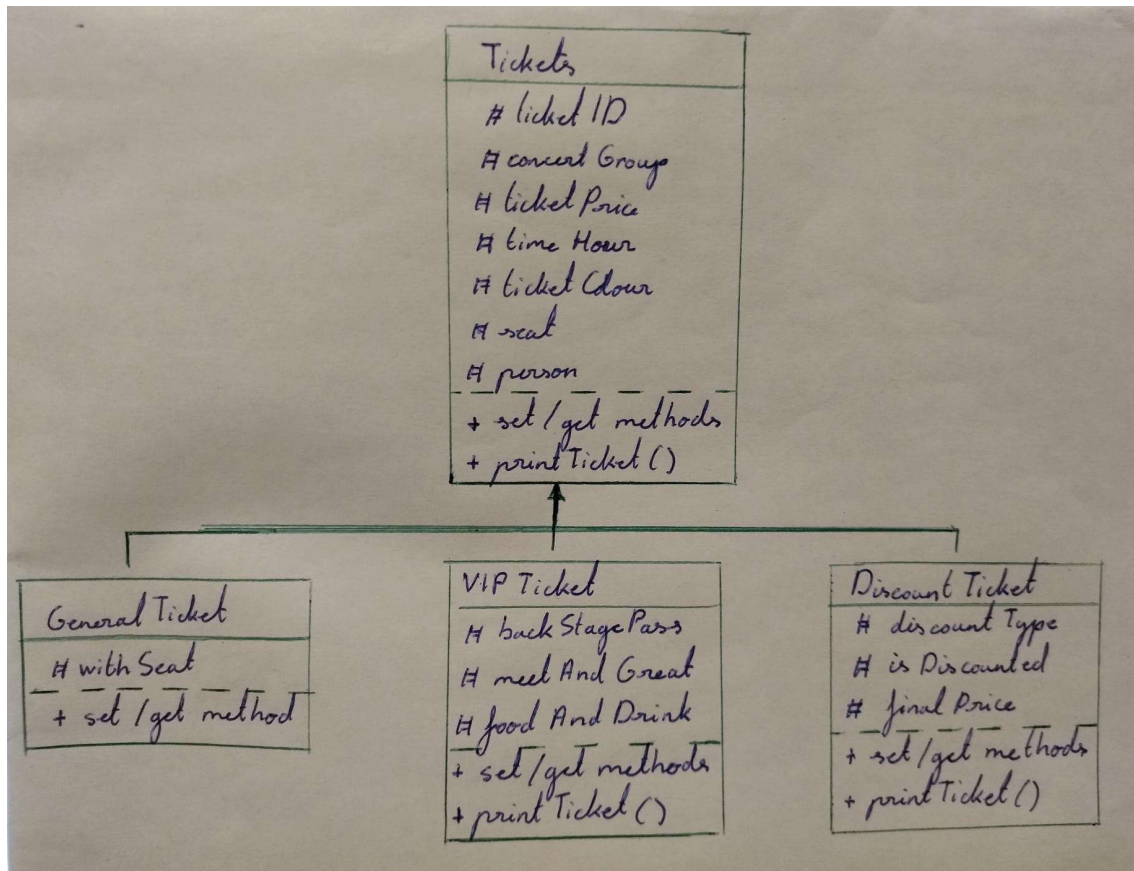 Tickets
# ticket ID
# concert Group
# ticket Price
# time Hour
# ticket Colour
# seat
# person
+ set / get methods
+ print Ticket ( )
General Ticket
# with Seat
+ set / get method
VIP Ticket
# back Stage Pass
# meet And Great
# food And Drink
+ set / get methods
+ print Ticket ( )
Discount Ticket
# discount Type
# is Discounted
# final Price
+ set / get methods
+ print Ticket ( )